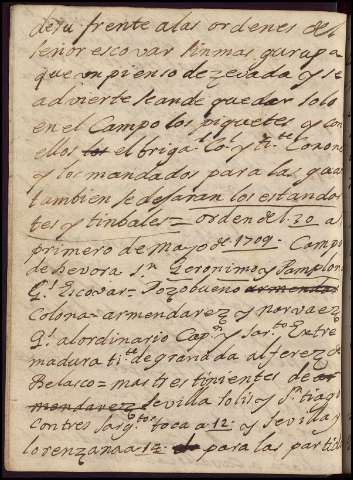 desu frente alas ordenes del
señor escovar sin mas gurupa
que un pienso de zevada y se
advierte se ande quedar solo
en el Campo los piquetes y con
ellos los el briga.l Co.l y ti.te Corone
y los mandados para las guar
tambien se dejaran los estandar
tes y tinbales = orden del 30 al
primero de Mayo de 1709. Campo
de hevora s.n Geronimo y Pamplona
G.l Escovar = Pozobueno armendar
Colona = armendarez y norvaez
G.l al ordinario Cap.n y sar.to Extre
madura ti.te de granada alferez de
Belasco = mas tres tinientes de ar
mendarez sevilla solis y s.n tiago
Con tres sarg.tos toca a 12 y sevilla y
lorenzana a 12 para las partid